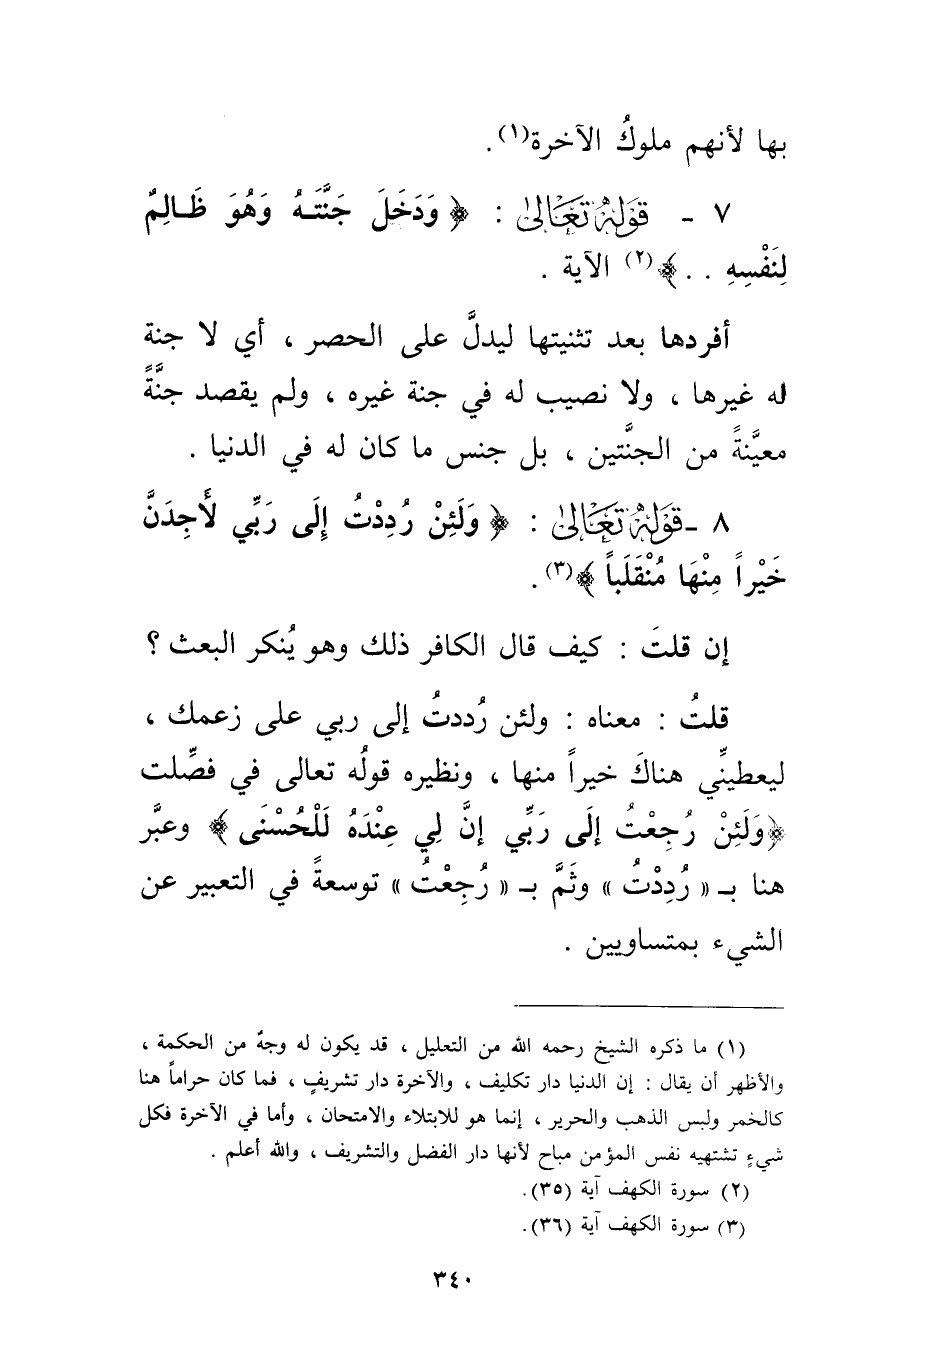 بها لأنهم ملوكُ الآخرة(١).
٧ - قَوْلُهُ تَعَالَىٰ : ﴿ وَدَخَلَ جَنَّتَـهُ وَهُوَ ظَـالِمٌ
لِنَفْسِهِ . . ﴾(٢) الآية .
أفردها بعد تثنيتها ليدلَّ على الحصر ، أي لا جنة
له غيرها ، ولا نصيب له في جنة غيره ، ولم يقصد جنَّةً
معيَّنةً من الجنَّتين ، بل جنس ما كان له في الدنيا .
٨ -قَوْلُهُ تَعَالَىٰ : ﴿ وَلَئِنْ رُدِدْتُ إِلَى رَبِّي لأَجِدَنَّ
خَيْراً مِنْهَا مُنْقَلَباً ﴾(٣).
إن قلتَ : كيف قال الكافر ذلك وهو يُنكر البعث ؟
قلتُ : معناه : ولئن رُددتُ إلى ربي على زعمك ،
ليعطينِّي هناكَ خيراً منها ، ونظيره قولُه تعالى في فصِّلت
﴿وَلَئِنْ رُجِعْتُ إلَى رَبِّي إنَّ لِي عِنْدَهُ لَلْحُسْنَى ﴾ وعبَّر
هنا بـ « رُدِدْتُ » وثَمَّ بـ « رُجِعْتُ » توسعةً في التعبير عن
الشيء بمتساويين .
(١) ما ذكره الشيخ رحمه الله من التعليل ، قد يكون له وجهٌ من الحكمة ،
والأظهر أن يقال : إن الدنيا دار تكليف ، والآخرة دار تشريفٍ ، فما كان حراماً هنا
كالخمر ولبس الذهب والحرير ، إنما هو للابتلاء والامتحان ، وأما في الآخرة فكل
شيءٍ تشتهيه نفس المؤمن مباح لأنها دار الفضل والتشريف ، والله أعلم .
(٢) سورة الكهف آية (٣٥).
(٣) سورة الكهف آية (٣٦).
٣٤٠